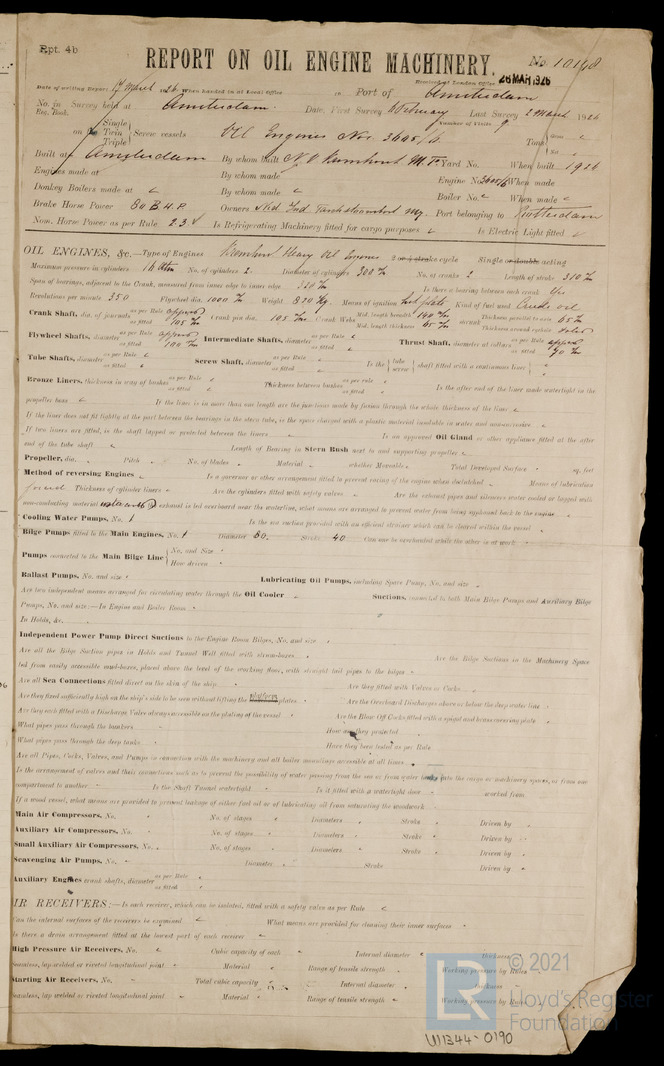 Rpt. 4b
REPORT ON OIL ENGINE MACHINERY.
No. 10148
Received at London Office 26 MAR 1926
Date of writing Report 17 March 1926 When handed in at Local Office Port of Amsterdam
No. in Survey held at Amsterdam. Date, First Survey February Last Survey 2 March 1926
Reg. Book. Number of Visits 9
on the Single Twin Triple Screw vessels Oil Engines Nos. 3605/6. Tons Gross Net
Built at Amsterdam By whom built N V Kromhout M. Fa Yard No. When built 1926
Engines made at By whom made Engine No. 3605/6 When made
Donkey Boilers made at By whom made Boiler No. When made
Brake Horse Power 80 B.H.P. Owners Ned. Ind. Tankstoomboot My. Port belonging to Rotterdam
Nom. Horse Power as per Rule 23 Is Refrigerating Machinery fitted for cargo purposes Is Electric Light fitted
OIL ENGINES, &c.—Type of Engines Kromhout Heavy Oil Engines 2 or 4 stroke cycle Single or double acting
Maximum pressure in cylinders 18 atm No. of cylinders 2 Diameter of cylinders 300 m/m No. of cranks 2 Length of stroke 310 m/m
Span of bearings, adjacent to the Crank, measured from inner edge to inner edge Is there a bearing between each crank Yes
Revolutions per minute 350 Flywheel dia. 1000 m/m Weight 820 Kg. Means of ignition hot plate Kind of fuel used Crude oil
Crank Shaft, dia. of journals as per Rule approved as fitted 105 m/m Crank pin dia. 105 m/m Crank Webs Mid. length breadth 140 m/m Mid. length thickness 65 m/m Thickness parallel to axis 65 m/m Thickness around eyehole solid
Flywheel Shafts, diameter as per Rule approved as fitted 100 m/m Intermediate Shafts, diameter as per Rule as fitted Thrust Shaft, diameter at collars as per Rule approved as fitted 90 m/m
Tube Shafts, diameter as per Rule as fitted Screw Shaft, diameter as per Rule as fitted Is the tube screw shaft fitted with a continuous liner
Bronze Liners, thickness in way of bushes as per Rule as fitted Thickness between bushes as per rule as fitted Is the after end of the liner made watertight in the
propeller boss If the liner is in more than one length are the junctions made by fusion through the whole thickness of the liner
If the liner does not fit tightly at the part between the bearings in the stern tube, is the space charged with a plastic material insoluble in water and non-corrosive
If two liners are fitted, is the shaft lapped or protected between the liners Is an approved Oil Gland or other appliance fitted at the after
end of the tube shaft Length of Bearing in Stern Bush next to and supporting propeller
Propeller, dia. Pitch No. of blades Material whether Moveable Total Developed Surface sq. feet
Method of reversing Engines Is a governor or other arrangement fitted to prevent racing of the engine when declutched Means of lubrication
forced Thickness of cylinder liners Are the cylinders fitted with safety valves Are the exhaust pipes and silencers water cooled or lagged with
non-conducting material watercooled If exhaust is led overboard near the waterline, what means are arranged to prevent water from being syphoned back to the engine
Cooling Water Pumps, No. 1 Is the sea suction provided with an efficient strainer which can be cleared within the vessel
Bilge Pumps fitted to the Main Engines, No. 1 Diameter 80. Stroke 40 Can one be overhauled while the other is at work
Pumps connected to the Main Bilge Line No. and Size How driven
Ballast Pumps, No. and size Lubricating Oil Pumps, including Spare Pump, No. and size
Are two independent means arranged for circulating water through the Oil Cooler Suctions, connected to both Main Bilge Pumps and Auxiliary Bilge
Pumps, No. and size:—In Engine and Boiler Room
In Holds, &c.
Independent Power Pump Direct Suctions to the Engine Room Bilges, No. and size
Are all the Bilge Suction pipes in Holds and Tunnel Well fitted with strum-boxes Are the Bilge Suctions in the Machinery Space
led from easily accessible mud-boxes, placed above the level of the working floor, with straight tail pipes to the bilges
Are all Sea Connections fitted direct on the skin of the ship Are they fitted with Valves or Cocks
Are they fixed sufficiently high on the ship's side to be seen without lifting the platform plates Are the Overboard Discharges above or below the deep water line
Are they each fitted with a Discharge Valve always accessible on the plating of the vessel Are the Blow Off Cocks fitted with a spigot and brass covering plate
What pipes pass through the bunkers How are they protected
What pipes pass through the deep tanks Have they been tested as per Rule
Are all Pipes, Cocks, Valves, and Pumps in connection with the machinery and all boiler mountings accessible at all times
Is the arrangement of valves and their connections such as to prevent the possibility of water passing from the sea or from water tanks into the cargo or machinery spaces, or from one
compartment to another Is the Shaft Tunnel watertight Is it fitted with a watertight door worked from
If a wood vessel, what means are provided to prevent leakage of either fuel oil or of lubricating oil from saturating the woodwork
Main Air Compressors, No. No. of stages Diameters Stroke Driven by
Auxiliary Air Compressors, No. No. of stages Diameters Stroke Driven by
Small Auxiliary Air Compressors, No. No. of stages Diameters Stroke Driven by
Scavenging Air Pumps, No. Diameter Stroke Driven by
Auxiliary Engines crank shafts, diameter as per Rule as fitted
IR RECEIVERS:—Is each receiver, which can be isolated, fitted with a safety valve as per Rule
Can the internal surfaces of the receivers be examined What means are provided for cleaning their inner surfaces
Is there a drain arrangement fitted at the lowest part of each receiver
High Pressure Air Receivers, No. Cubic capacity of each Internal diameter thickness
Seamless, lap welded or riveted longitudinal joint Material Range of tensile strength Working pressure by Rules
Starting Air Receivers, No. Total cubic capacity Internal diameter thickness
Seamless, lap welded or riveted longitudinal joint Material Range of tensile strength Working pressure by Rules
© 2021
LR
Lloyd's Register
Foundation
W1344-0190